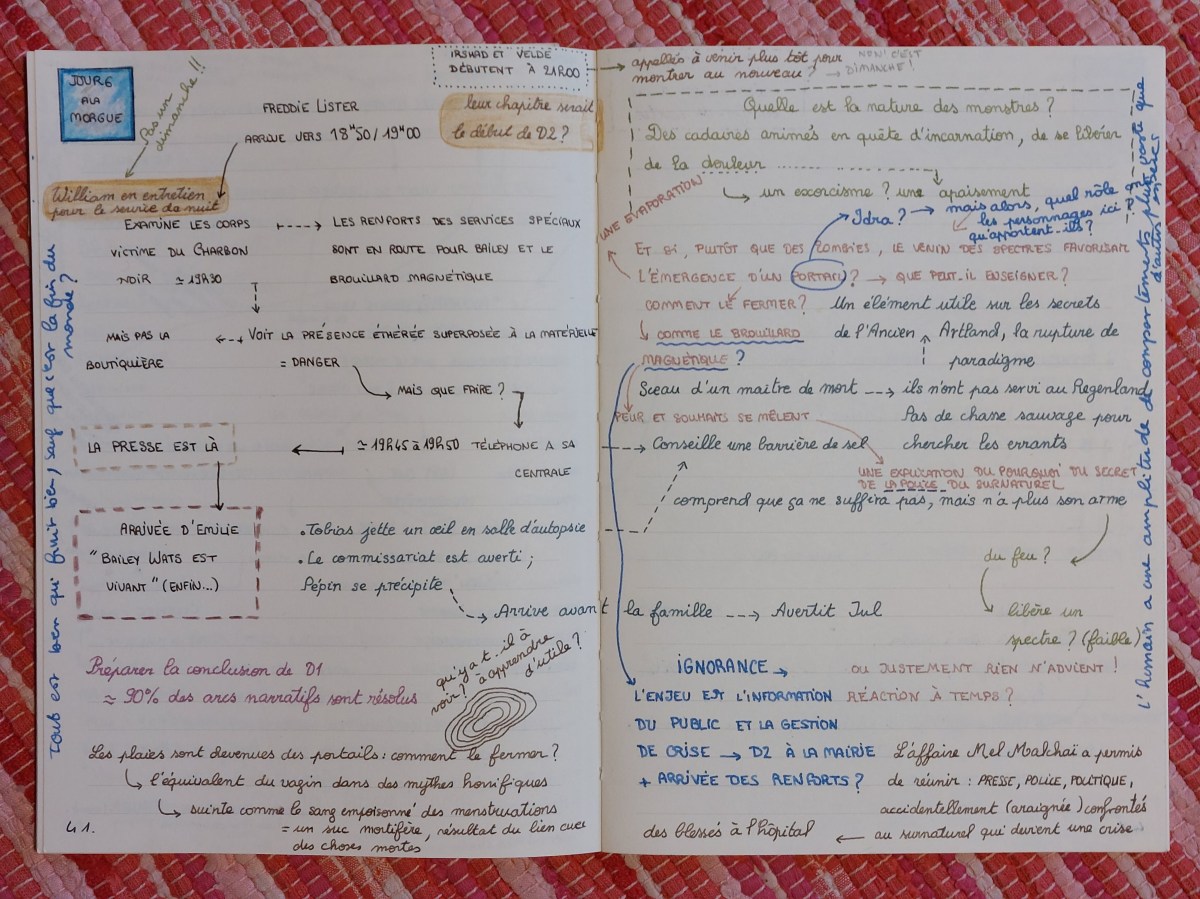 JOUR 6
À LA
MORGUE
Pas un
dimanche !!
FREDDIE LISTER
ARRIVE VERS 18H50 / 19H00
IRSHAD ET VELDE
DÉBUTENT À 21H00
leur chapitre serait
le début de D2 ?
William en entretien
pour le service de nuit
EXAMINE LES CORPS
VICTIME DU CHARBON
NOIR ≃ 19H30
LES RENFORTS DES SERVICES SPÉCIAUX
SONT EN ROUTE POUR BAILEY ET LE
BROUILLARD MAGNÉTIQUE
MAIS PAS LA
BOUTIQUIÈRE
VOIT LA PRÉSENCE ÉTHÉRÉE SUPERPOSÉE À LA MATÉRIELLE
= DANGER
MAIS QUE FAIRE ?
LA PRESSE EST LÀ
≃ 19H45 à 19H50 TÉLÉPHONE À SA
CENTRALE
ARRIVÉE D'EMILIE
"BAILEY WATS EST
VIVANT" (ENFIN...)
. Tobias jette un œil en salle d'autopsie
. Le commissariat est averti ;
Pépin se précipite
Arrive avant la famille → Avertit Jul
Préparer la conclusion de D1
≃ 90% des arcs narratifs sont résolus
qu'y a t-il à
voir ? à apprendre
d'utile ?
Les plaies sont devenues des portails : comment le fermer ?
l'équivalent du vagin dans des mythes horrifiques
suinte comme le sang empoisonné des menstruations
= un suc mortifère, résultat du lien avec
des choses mortes
41.
Tout est bien qui finit bien, sauf que c'est la fin du
monde ?
appellés à venir plus tôt pour
montrer au nouveau ? → NON ! C'EST
DIMANCHE !
Quelle est la nature des monstres ?
Des cadavres animés en quête d'incarnation, de se libérer
de la douleur ..................
un exorcisme ? une apaisement
UNE ÉVAPORATION
Idra ? → mais alors, quel rôle ont
les personnages ici ?
qu'apportent-ils ?
ET SI, PLUTÔT QUE DES ZOMBIES, LE VENIN DES SPECTRES FAVORISAIT
L'ÉMERGENCE D'UN PORTAIL ? → QUE PEUT-IL ENSEIGNER ?
COMMENT LE FERMER ?
COMME LE BROUILLARD
MAGNÉTIQUE ?
Un élément utile sur les secrets
de l'Ancien Artland, la rupture de
paradigme
Sceau d'un maitre de mort → ils n'ont pas servi au Regenland
PEUR ET SOUHAITS SE MÊLENT
Pas de chasse sauvage pour
chercher les errants
Conseille une barrière de sel
UNE EXPLICATION DU POURQUOI DU SECRET
DE LA POLICE DU SURNATUREL
comprend que ça ne suffira pas, mais n'a plus son arme
du feu ?
libère un
spectre ? (faible)
IGNORANCE → OU JUSTEMENT RIEN N'ADVIENT !
RÉACTION À TEMPS ?
L'ENJEU EST L'INFORMATION
DU PUBLIC ET LA GESTION
DE CRISE → D2 À LA MAIRIE
+ ARRIVÉE DES RENFORTS ?
L'affaire Mel Malchaï a permis
de réunir : PRESSE, POLICE, POLITIQUE,
accidentellement (araignée) confrontés
au surnaturel qui devient une crise
des blessés à l'hôpital
L'humain a une amplitude de comportements plus vaste que
d'autres espèces